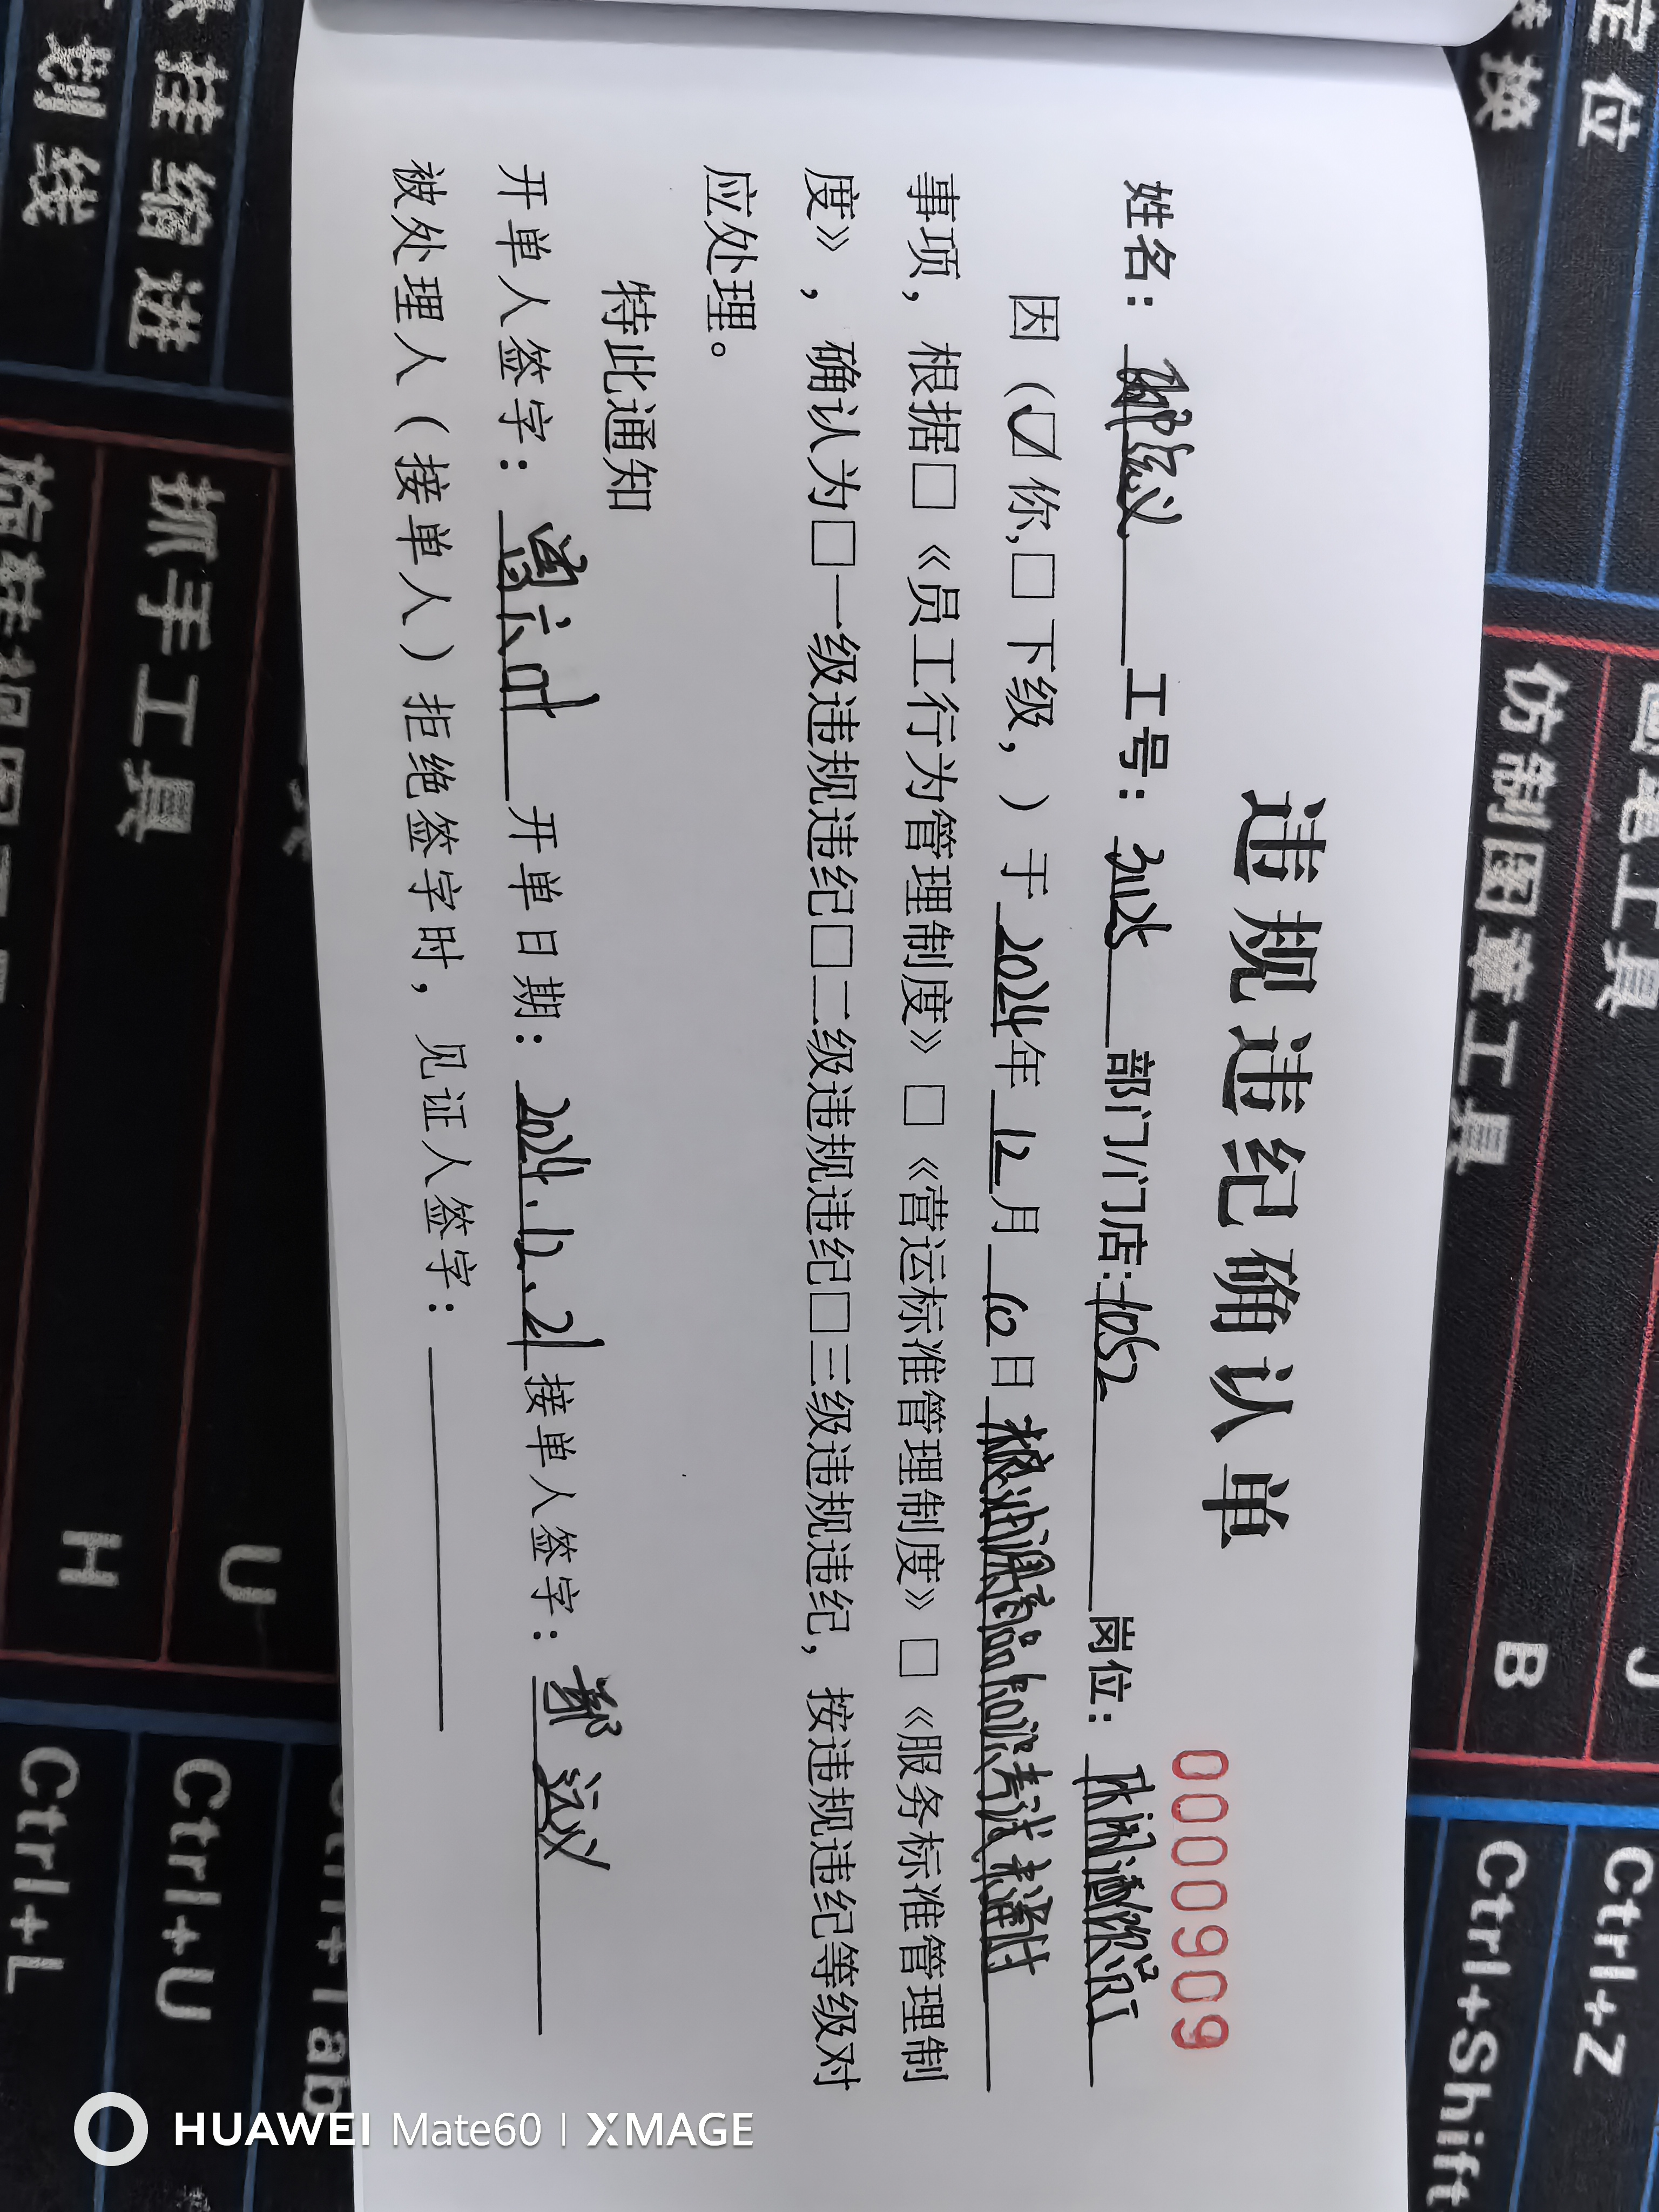 违规违纪确认单
0000909
姓名： 工号： 部门/门店:1052 岗位：
因（☑你,□下级，）于2024年12月10日 粮油调商品知识考试未通过
事项，根据□《员工行为管理制度》□《营运标准管理制度》□《服务标准管理制
度》，确认为□一级违规违纪□二级违规违纪□三级违规违纪，按违规违纪等级对
应处理。
特此通知
开单人签字： 开单日期：2024.12.21 接单人签字：
被处理人（接单人）拒绝签字时，见证人签字：
定位
替换
画笔工具 J
仿制图章工具 B
Ctrl+Z
Ctrl+Shift
抓手工具 H
U
Ctrl+Tab
Ctrl+U
Ctrl+L
HUAWEI Mate60 | XMAGE